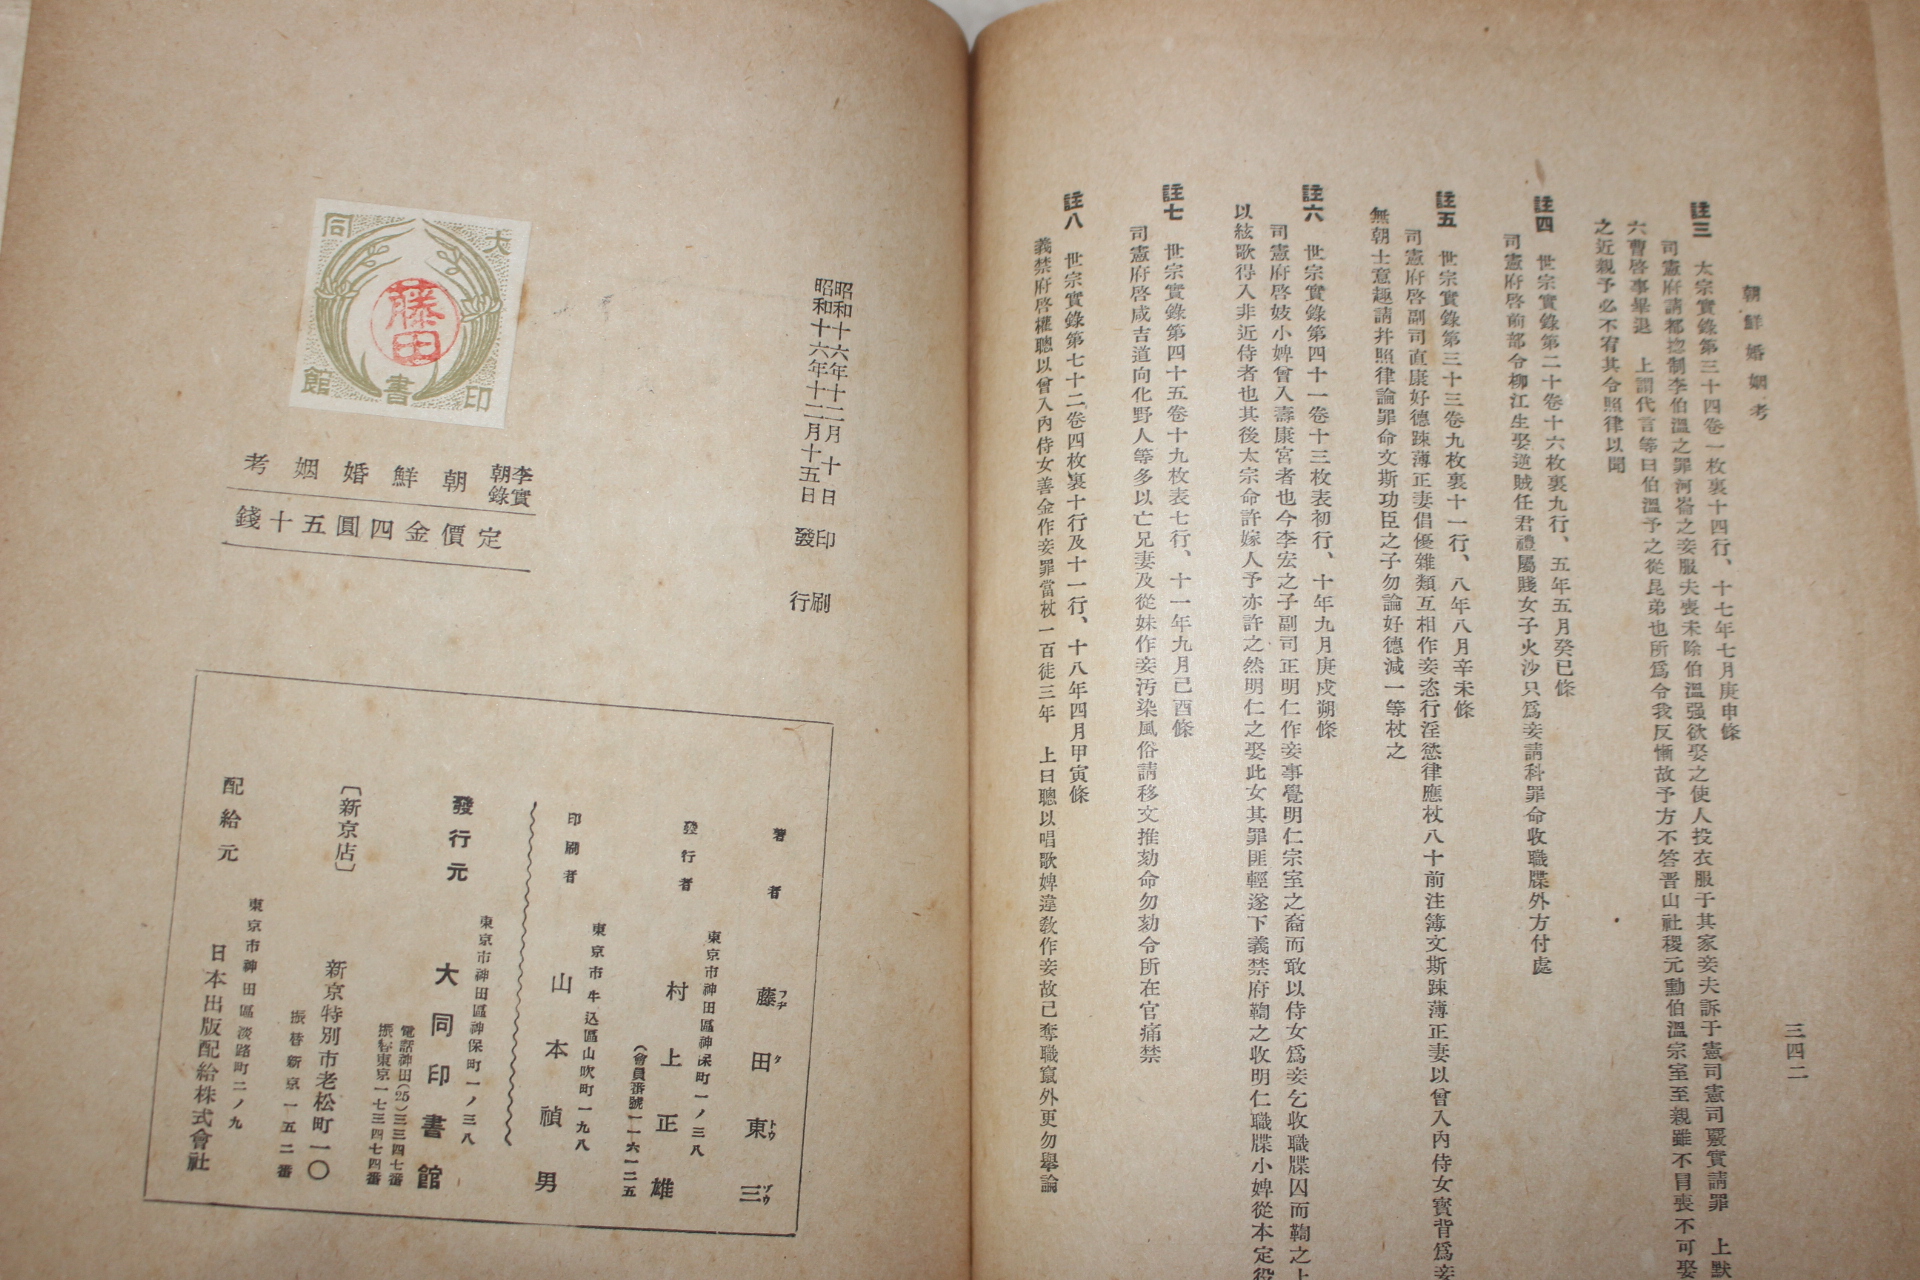 朝鮮婚姻考
三四二
註三　太宗實錄第三十四卷一枚裏十四行、十七年七月庚申條
司憲府請都摠制李伯溫之罪河崙之妾服夫喪未除伯溫强欲娶之使人投衣服于其家妾夫訴于憲司憲司覈實請罪　上默
六曹啓事畢退　上謂代言等曰伯溫予之從昆弟也所爲令我反慚故予方不答晋山社稷元勳伯溫宗室至親雖不冒喪不可娶
之近親予必不宥其令照律以聞
註四　世宗實錄第二十卷十六枚裏九行、五年五月癸巳條
司憲府啓前部令柳江生娶逆賊任君禮屬賤女子火沙只爲妾請科罪命收職牒外方付處
註五　世宗實錄第三十三卷九枚裏十一行、八年八月辛未條
司憲府啓副司直康好德踈薄正妻倡優雜類互相作妾恣行淫慾律應杖八十前注簿文斯踈薄正妻以曾入內侍女實背爲妾
無朝士意趣請幷照律論罪命文斯功臣之子勿論好德減一等杖之
註六　世宗實錄第四十一卷十三枚表初行、十年九月庚戌朔條
司憲府啓妓小婢曾入壽康宮者也今李宏之子副司正明仁作妾事覺明仁宗室之裔而敢以侍女爲妾乞收職牒囚而鞫之上
以絃歌得入非近侍者也其後太宗命許嫁人予亦許之然明仁之娶此女其罪匪輕遂下義禁府鞫之收明仁職牒小婢從本定役
註七　世宗實錄第四十五卷十九枚表七行、十一年九月己酉條
司憲府啓咸吉道向化野人等多以亡兄妻及從妹作妾汚染風俗請移文推劾命勿劾令所在官痛禁
註八　世宗實錄第七十二卷四枚裏十行及十一行、十八年四月甲寅條
義禁府啓權聰以曾入內侍女善金作妾罪當杖一百徒三年　上曰聰以唱歌婢違敎作妾故已奪職竄外更勿擧論
昭和十六年十二月十日　印刷
昭和十六年十二月十五日　發行
大同印書館
藤田
李朝實錄　朝鮮婚姻考
定價金四圓五十錢
著者　藤田東三
フヂタトウゾウ
東京市神田區神保町一ノ三八
發行者　村上正雄
（會員番號一一六一二五
東京市牛込區山吹町一九八
印刷者　山本禎男
東京市神田區神保町一ノ三八
發行元　大同印書館
電話神田(25)三三四七番
振替東京一七三四七四番
〔新京店〕　新京特別市老松町一〇
振替新京一五二番
東京市神田區淡路町二ノ九
配給元　日本出版配給株式會社